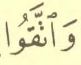 وَٱتَّقُوا